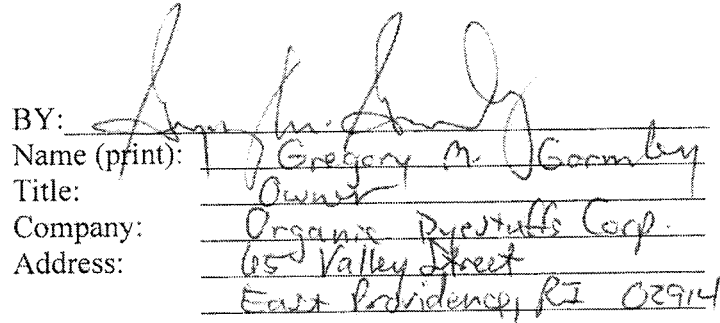 BY:
Name (print): Gregory M. Gormley
Title: Owner
Company: Organic Dyestuffs Corp.
Address: 65 Valley Street
East Providence, RI 02914